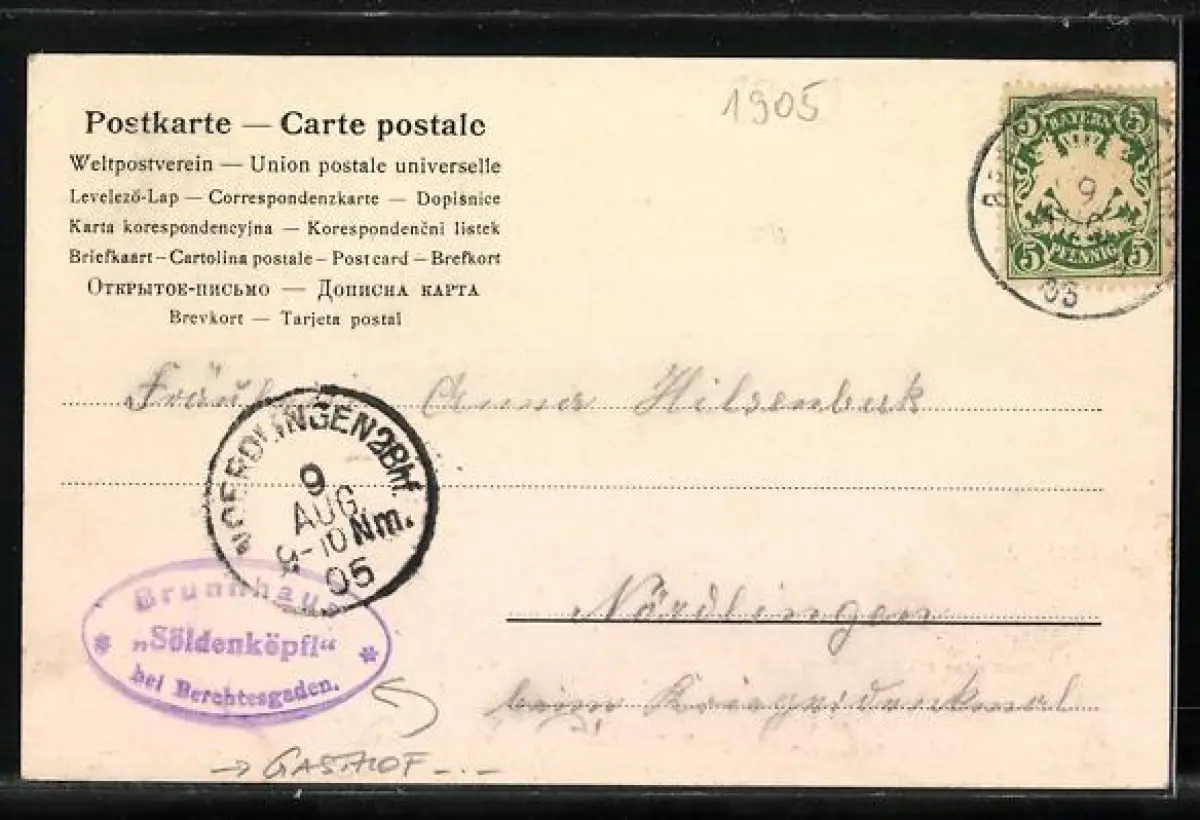 1905
Postkarte — Carte postale
Weltpostverein — Union postale universelle
Levelező-Lap — Correspondenzkarte — Dopisnice
Karta korespondencyjna — Korespondenčni listek
Briefkaart — Cartolina postale — Post card — Brefkort
Открытое-письмо — Дописна карта
Brevkort — Tarjeta postal
5 BAYERN 5
5 PFENNIG 5
9
05
Anna Hilsenbek
NOERDLINGEN 2 Bhf.
9
AUG
9-10 Nm.
05
Nördlingen
beim Kriegerdenkmal
Brunnhaus
„Söldenköpfl“
bei Berchtesgaden.
→ GASTHOF